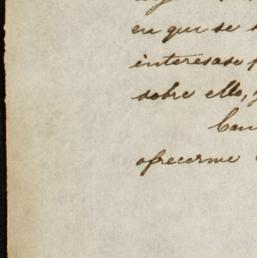 en que se
interesase
sobre ello,
ofrecerme